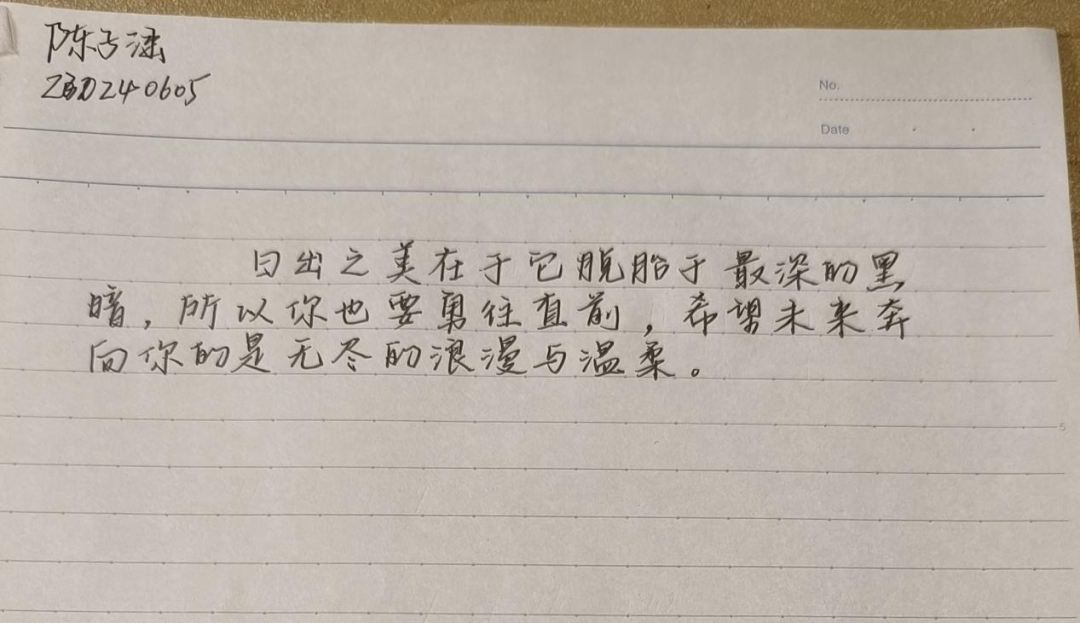 陈子涵
ZBD240605
No.
Date
日出之美在于它脱胎于最深的黑
暗，所以你也要勇往直前，希望未来奔
向你的是无尽的浪漫与温柔。
5